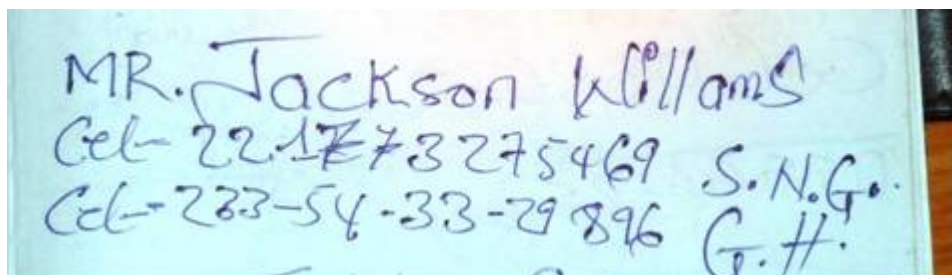 MR. Jackson Willams
Cel- 221773275469 S.N.G.
Cel- 233-54-33-29896 G.H.